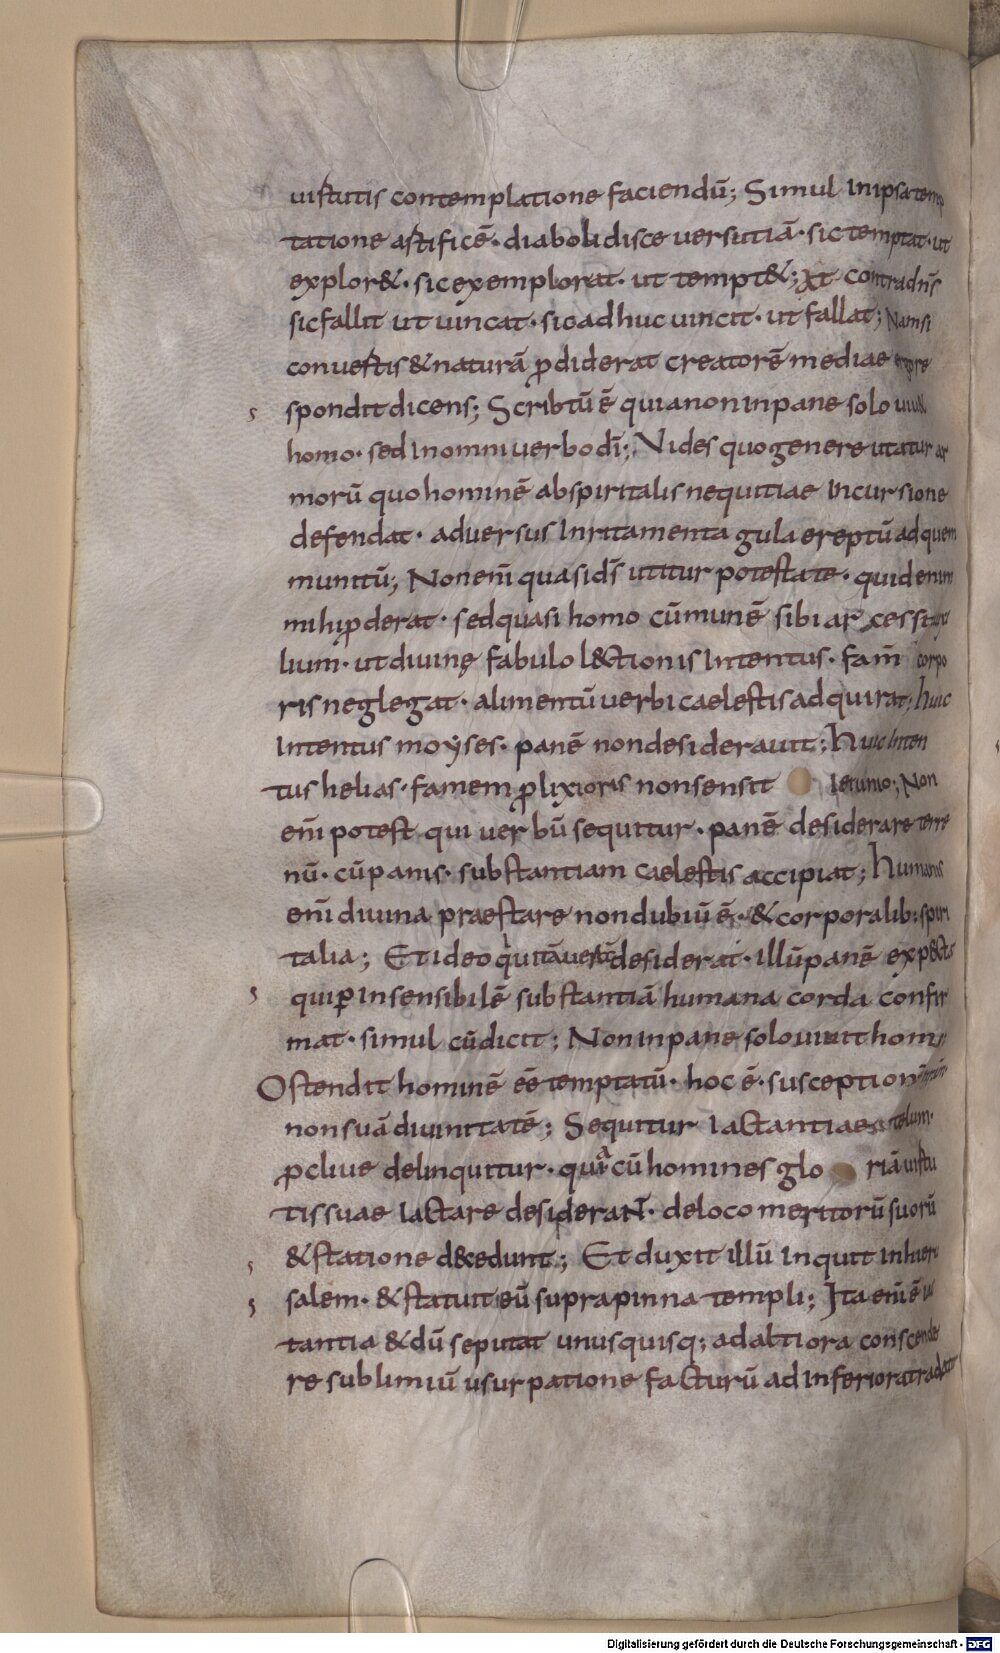 uirtutis contemplatione faciendū; Simul inipsa temp
tatione artificē· diaboli disce uersutiā· sic temptat· ut
explor&· sic exemplorat· ut tempt&; Et contra dn̄s
sic fallit ut uincat· sic adhuc uincit· ut fallat; Nam si
conuertis & naturā ꝓdiderat creatorē mediae
spondit dicens; Scribtū ē quia non in pane solo uiuit
homo· sed in omni uerbo dī; Vides quo genere utatur ar
morū quo hominē ab spiritalis nequitiae incursione
defendat· aduersus inritamenta gula ereptū ad quem
munitū; Non enī quasi ds̄ utitur potestate· quid enim
mihi ꝓderat· sed quasi homo cūmunē sibi arcessit
lium· ut diuinę fabulo l&tionis intentus· famī corpo
ris neglegat· alimentū uerbi caelestis adquirat; huic
intentus moyses· panē non desiderauit; Huic inten
tus helias· famem ꝓlixioris non sensit ieiunio; Non
enī potest qui uerbū sequitur· panē desiderare terre
nū· cū panis· substantiam caelestis accipiat; humanis
enī diuina praestare non dubiū ē· & corporalib: spiri
talia; Et ideo qui uitā uerā desiderat· illū panē exp&ta
qui ꝑ insensibilē substantiā humana corda confir
mat· simul cū dicit; Non in pane solo uiuit homo
Ostendit hominē eē temptatū· hoc ē· susceptionē
non suā diuinitatē; Sequitur iactantiae telum·
ꝓcliue delinquitur· quia cū homines gloriā uirtu
tis suae iactare desideraNT· de loco meritorū suorū
& statione d&cedunt; Et duxit illū inquit in hieru
salem· & statuit eū supra pinna templi; Ita enī ē
tantia & dū se putat unusquisq; ad altiora conscende
re sublimiū usurpatione facturū ad inferiora tradatur
Digitalisierung gefördert durch die Deutsche Forschungsgemeinschaft - DFG